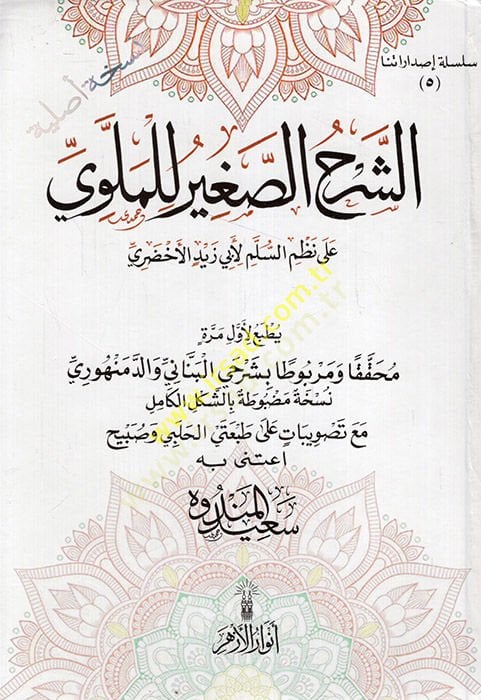 سلسلة إصداراتنا
(٥)
نسخة أصلية
الشَّرْحُ الصَّغِيرُ لِلْمَلَّوِيِّ
عَلَى نَظْمِ السُّلَّمِ لِأَبِي زَيْدٍ الأَخْضَرِيِّ
يُطْبَعُ لِأَوَّلِ مَرَّةٍ
مُحَقَّقًا وَمَرْبُوطًا بِشَرْحَيِ الْبَنَّانِيِّ وَالدَّمَنْهُورِيِّ
نُسْخَةٌ مَضْبُوطَةٌ بِالشَّكْلِ الْكَامِلِ
مَعَ تَصْوِيبَاتٍ عَلَى طَبْعَتَيِ الْحَلَبِيِّ وَصُبَيْحٍ
اعتنى به
سَعِيدُ الْمَنْدُوه
أنوار الأزهر